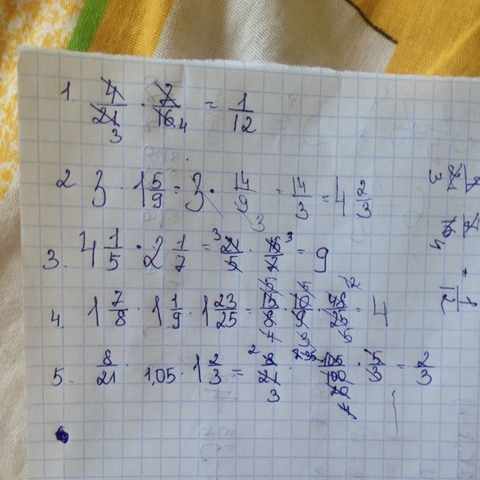 1. 4/21 3 · 7/16 4 = 1/12
2 3 · 1 5/9 = 3 · 14/9 3 = 14/3 = 4 2/3
3. 4 1/5 · 2 1/7 = 3 21/5 · 15/7 3 = 9
4. 1 7/8 · 1 1/9 · 1 23/25 = 4
5. 8/21 · 1,05 · 1 2/3 = 2 8/21 3 · 105/100 20 · 5/3 = 2/3